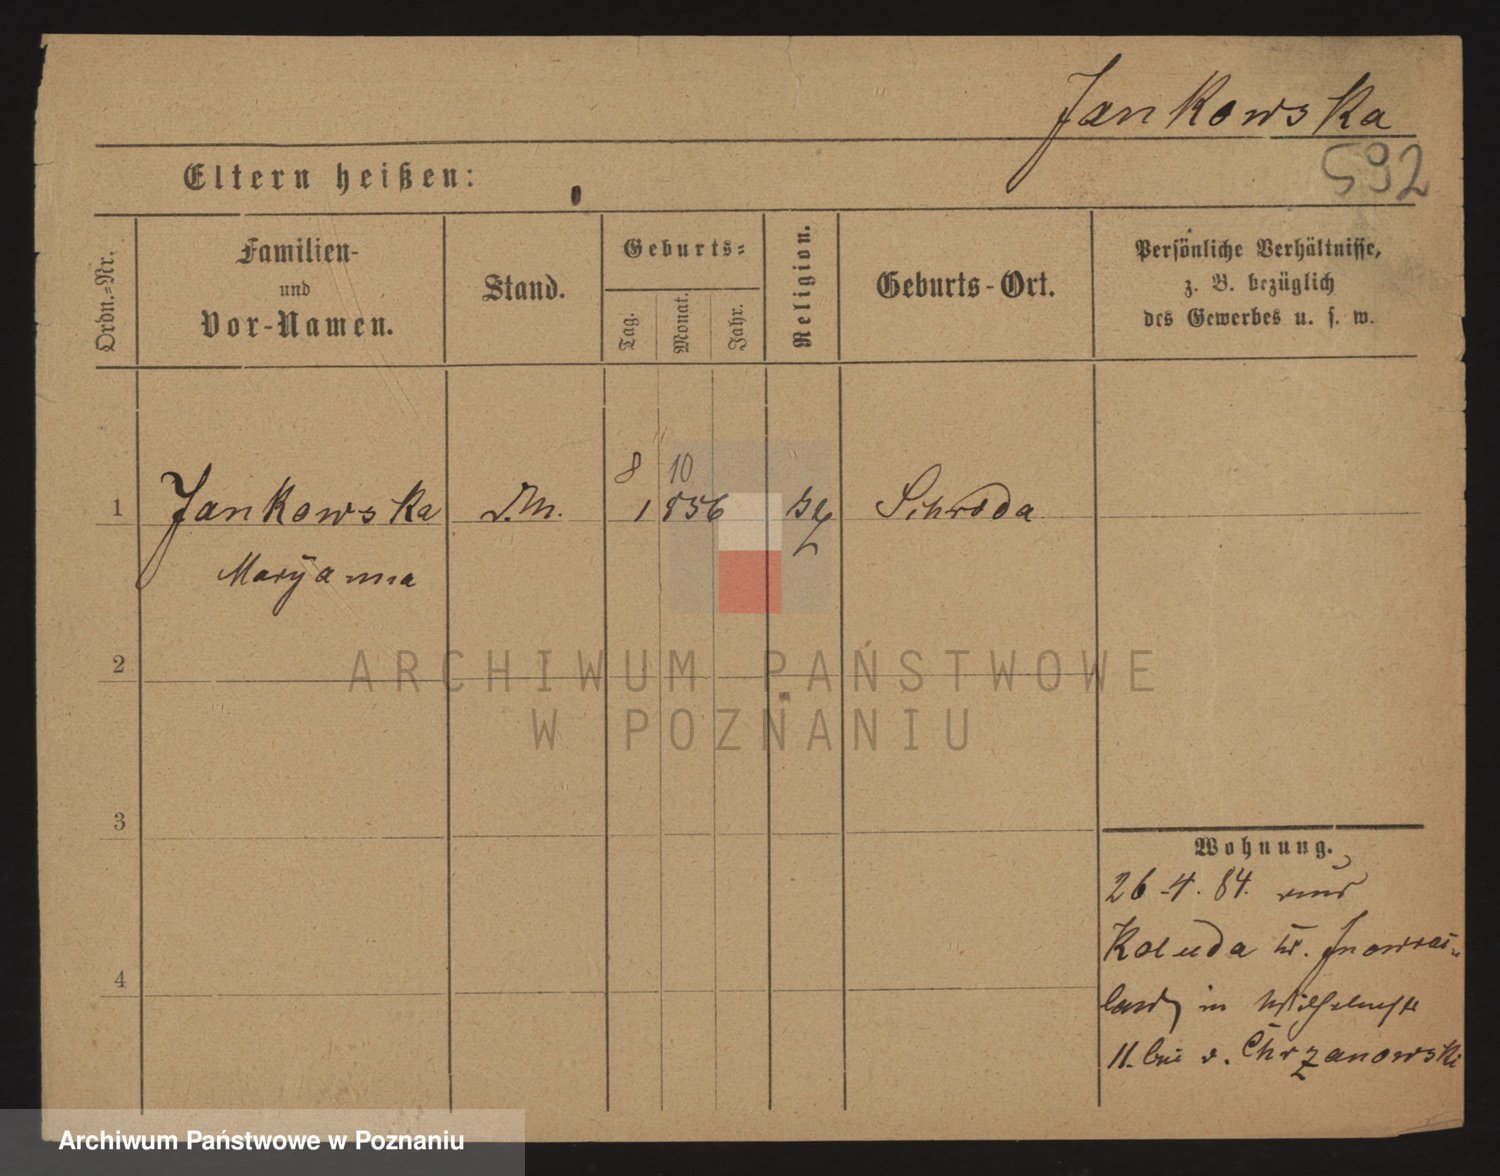 Jankowska
592
Eltern heißen:
Ordn.-Nr.
Familien-
und
Vor-Namen.
Stand.
Geburts-
Tag.
Monat.
Jahr.
Religion.
Geburts-Ort.
Persönliche Verhältnisse,
z. B. bezüglich
des Gewerbes u. s. w.
8 10
1 Jankowska 1856 Schroda
Maryanna
2
ARCHIWUM PAŃSTWOWE
W POZNANIU
3
Wohnung.
26-4. 84. aus
Koluda kr. Inowraz-
law in Wilhelmstr
11. bei v. Chrzanowski
4
Archiwum Państwowe w Poznaniu